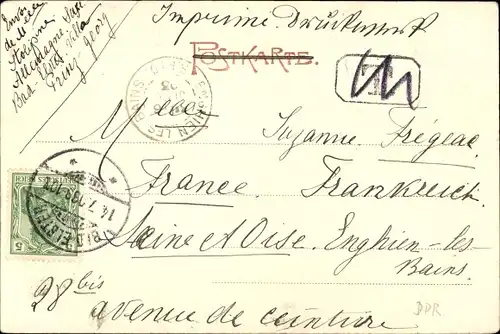 Envoi
de Melle
Allemagne Saxe
Bad Elster Villa
Prinz Georg
Imprimé Drucksache
POSTKARTE.
ENGHIEN LES BAINS
BAD ELSTER
14.7.
5
Melle Suzanne Frégeac
France. Frankreich
Seine et Oise. Enghien-les-
Bains.
28 bis
avenue de ceinture
DDR